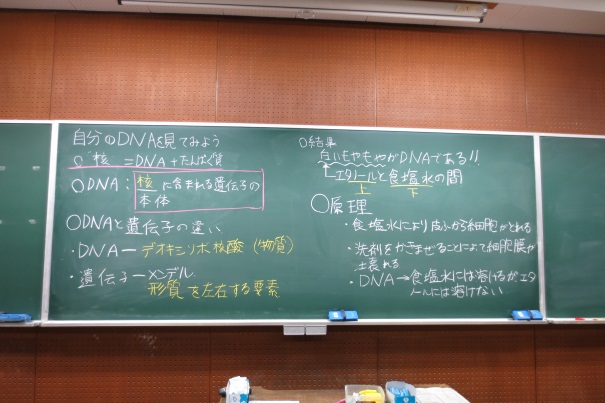 自分のDNAを見てみよう
○核 =DNA+たんぱく質
○DNA:核に含まれる遺伝子の
本体
○DNAと遺伝子の違い
・DNAーデオキシリボ核酸(物質)
・遺伝子ーメンデル
形質を左右する要素
○結果
白いもやもやがDNAである!!
エタノールと食塩水の間
上 下
○原理
・食塩水により皮ふから細胞がとれる
・洗剤をかきまぜることによって細胞膜が
壊れる
・DNA→食塩水には溶けるがエタ
ノールには溶けない